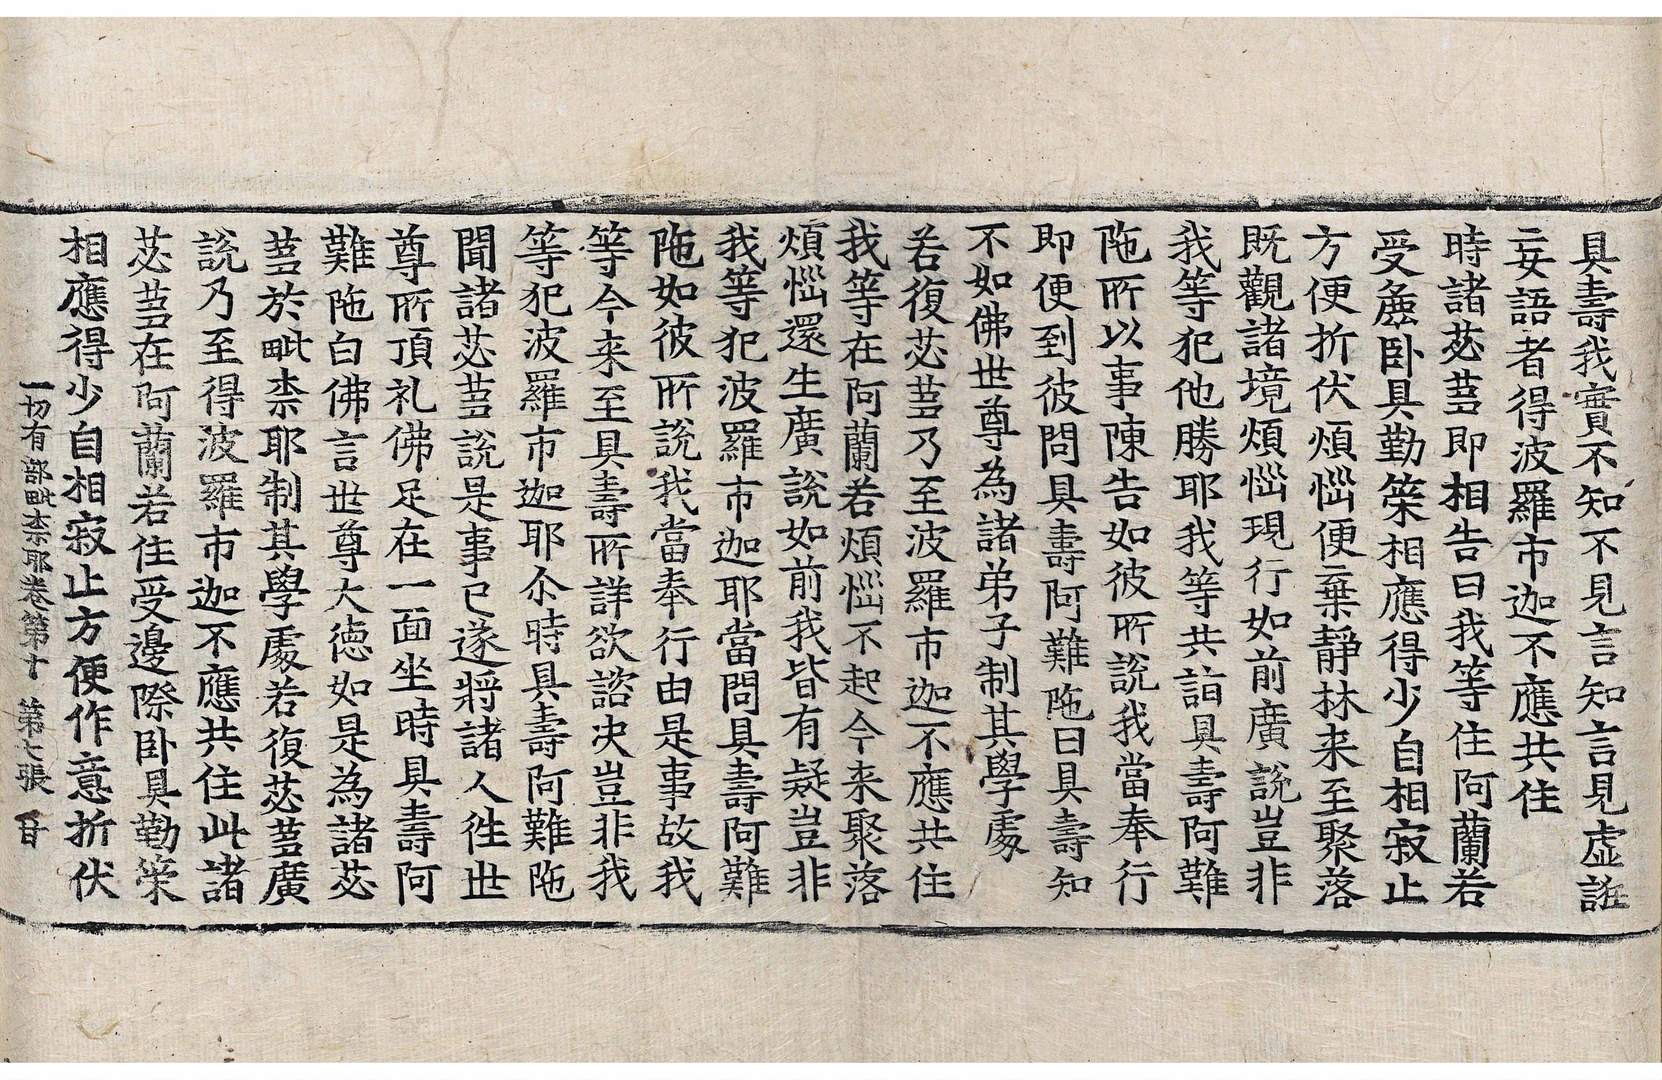 具壽我實不知不見言知言見虛誑
妄語者得波羅市迦不應共住
時諸苾蒭即相告曰我等住阿蘭若
受麁卧具勤策相應得少自相寂止
方便折伏煩惱便棄靜林来至聚落
既觀諸境煩惱現行如前廣說豈非
我等犯他勝耶我等共詣具壽阿難
陁所以事陳告如彼所說我當奉行
即便到彼問具壽阿難陁曰具壽知
不如佛世尊為諸弟子制其學處
若復苾蒭乃至波羅市迦不應共住
我等在阿蘭若煩惱不起今来聚落
煩惱還生廣說如前我皆有疑豈非
我等犯波羅市迦耶當問具壽阿難
陁如彼所說我當奉行由是事故我
等今来至具壽所詳欲諮決豈非我
等犯波羅市迦耶尒時具壽阿難陁
聞諸苾蒭說是事已遂將諸人徃世
尊所頂礼佛足在一面坐時具壽阿
難陁白佛言世尊大德如是為諸苾
蒭於毗柰耶制其學處若復苾蒭廣
說乃至得波羅市迦不應共住此諸
苾蒭在阿蘭若住受邊際卧具勤策
相應得少自相寂止方便作意折伏
一切有部毗柰耶卷第十 第七張 甘